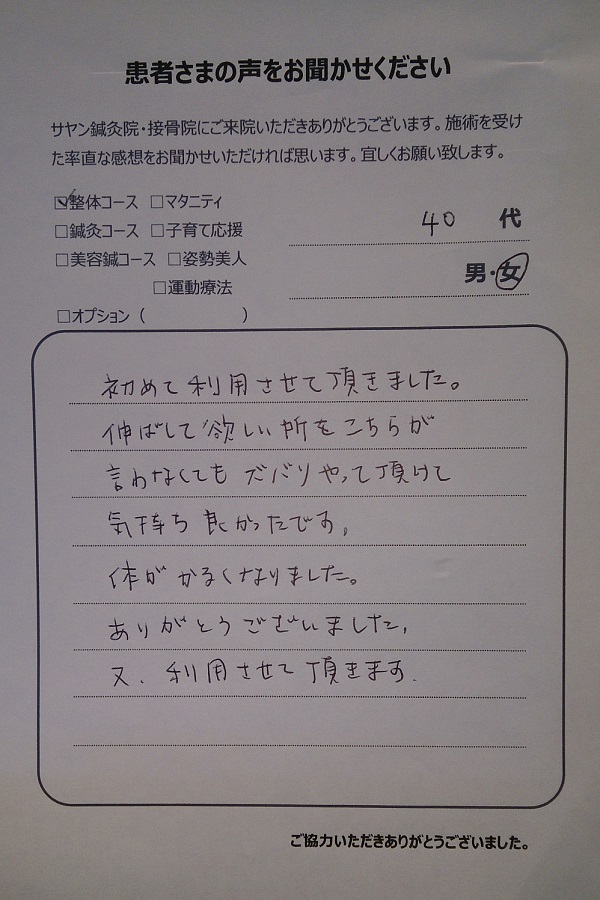 患者さまの声をお聞かせください
サヤン鍼灸院・接骨院にご来院いただきありがとうございます。施術を受け
た率直な感想をお聞かせいただければ思います。宜しくお願い致します。
☑整体コース □マタニティ
□鍼灸コース □子育て応援
40 代
□美容鍼コース □姿勢美人
男・女
□運動療法
□オプション（ ）
初めて利用させて頂きました。
伸ばして欲しい所をこちらが
言わなくても ズバリやって頂けて
気持ち良かったです。
体がかるくなりました。
ありがとうございました。
又、利用させて頂きます.
ご協力いただきありがとうございました。